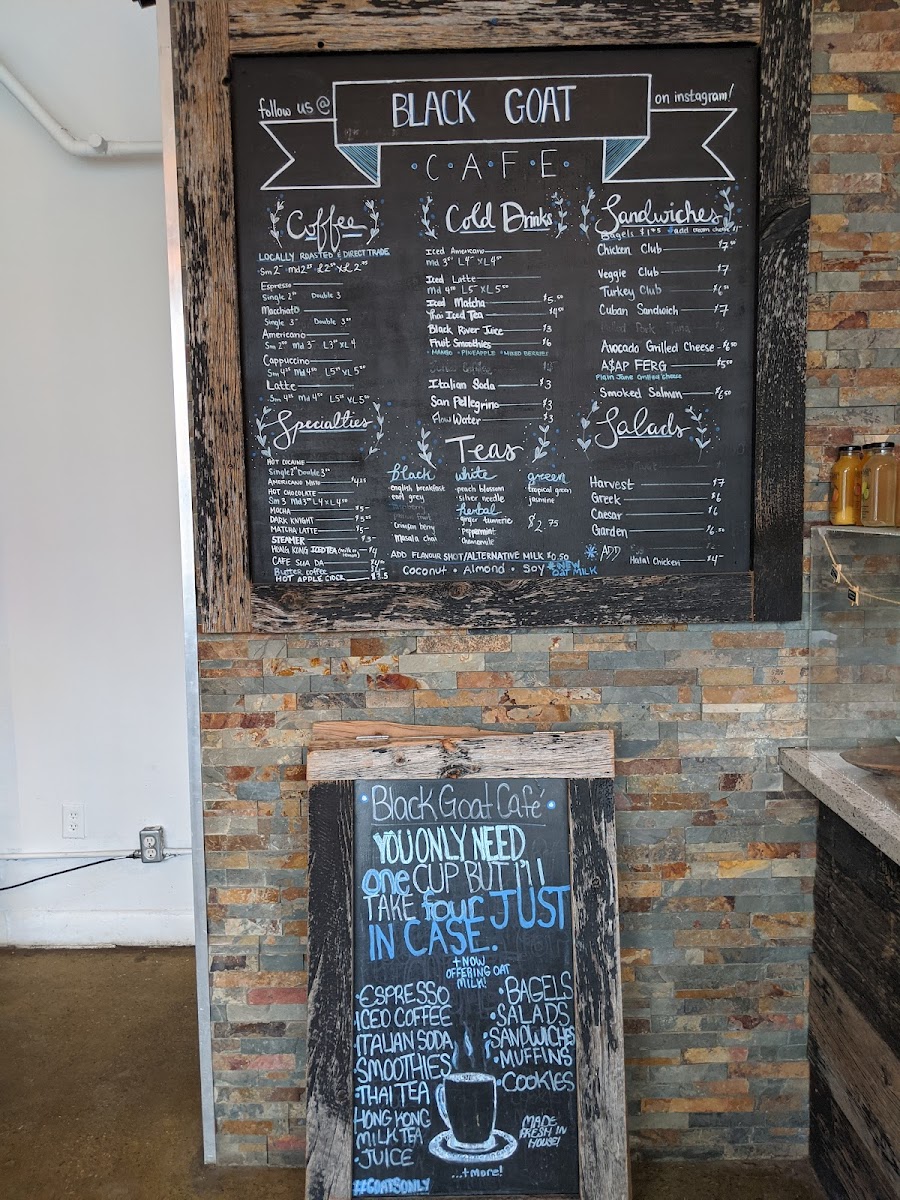 follow us @
BLACK GOAT
on instagram!
CAFE
Coffee
LOCALLY ROASTED & DIRECT TRADE
Espresso
Single 2⁵⁰ Double 3
Macchiato
Americano
Cappuccino
Latte
Specialties
HOT COCAINE
AMERICANO MISTO $4.25
HOT CHOCOLATE
MOCHA $5
DARK KNIGHT $5
MATCHA LATTE $5
STEAMER $3
HONG KONG ICED TEA $4
CAFE SUA DA
Butter coffee
HOT APPLE CIDER $3.5
Cold Drinks
Iced Americano
Md 3⁵⁰ L4 XL4⁵⁰
Iced Latte
Md 4⁵⁰ L5 XL5⁵⁰
Iced Matcha $5.50
Thai Iced Tea $4⁵⁰
Black River Juice $3
Fruit Smoothies $6
MANGO · PINEAPPLE · MIXED BERRIES
Italian Soda $3
San Pellegrino $3
Flow Water $3
Teas
black
english breakfast
earl grey
Crimson berry
Masala chai
white
peach blossom
silver needle
herbal
ginger turmeric
peppermint
chamomile
green
tropical green
jasmine
$2.75
ADD FLAVOUR SHOT/ALTERNATIVE MILK $0.50
Coconut · Almond · Soy NEW OAT MILK
Sandwiches
Chicken Club $7.⁵⁰
Veggie Club $7
Turkey Club $6.⁵⁰
Cuban Sandwich $7
Avocado Grilled Cheese $6.⁵⁰
A$AP FERG $5⁵⁰
Plain Jane Grilled Cheese
Smoked Salmon $6.⁵⁰
Salads
Harvest $7
Greek $6
Caesar $6
Garden $6.⁵⁰
ADD
Halal Chicken $4
Black Goat Café
YOU ONLY NEED
one CUP BUT I'll
TAKE four JUST
IN CASE.
+ NOW
OFFERING OAT
MILK!
·ESPRESSO
ICED COFFEE
ITALIAN SODA
SMOOTHIES
·THAI TEA
HONG KONG
MILK TEA
·JUICE
#GOATSONLY
·BAGELS
·SALADS
·SANDWICHES
·MUFFINS
·COOKIES
MADE
FRESH IN
HOUSE!
...+more!